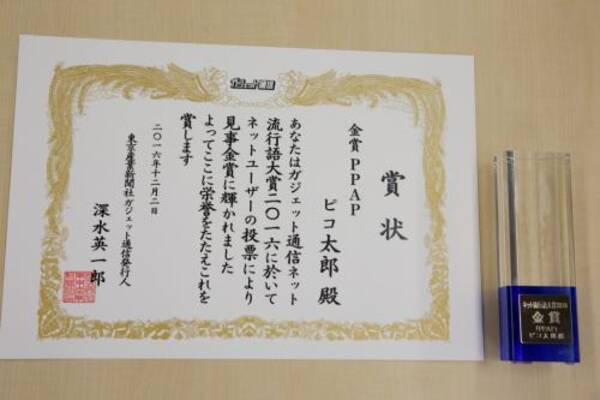 ガジェット通信
賞状
金賞 PPAP
ピコ太郎 殿
あなたはガジェット通信ネット
流行語大賞二〇一六に於いて
ネットユーザーの投票により
見事金賞に輝かれました
よってここに栄誉をたたえこれを
賞します
二〇一六年十二月二日
東京産業新聞社 ガジェット通信発行人
深水英一郎
ネット流行語大賞2016
金賞
PPAP
ピコ太郎殿